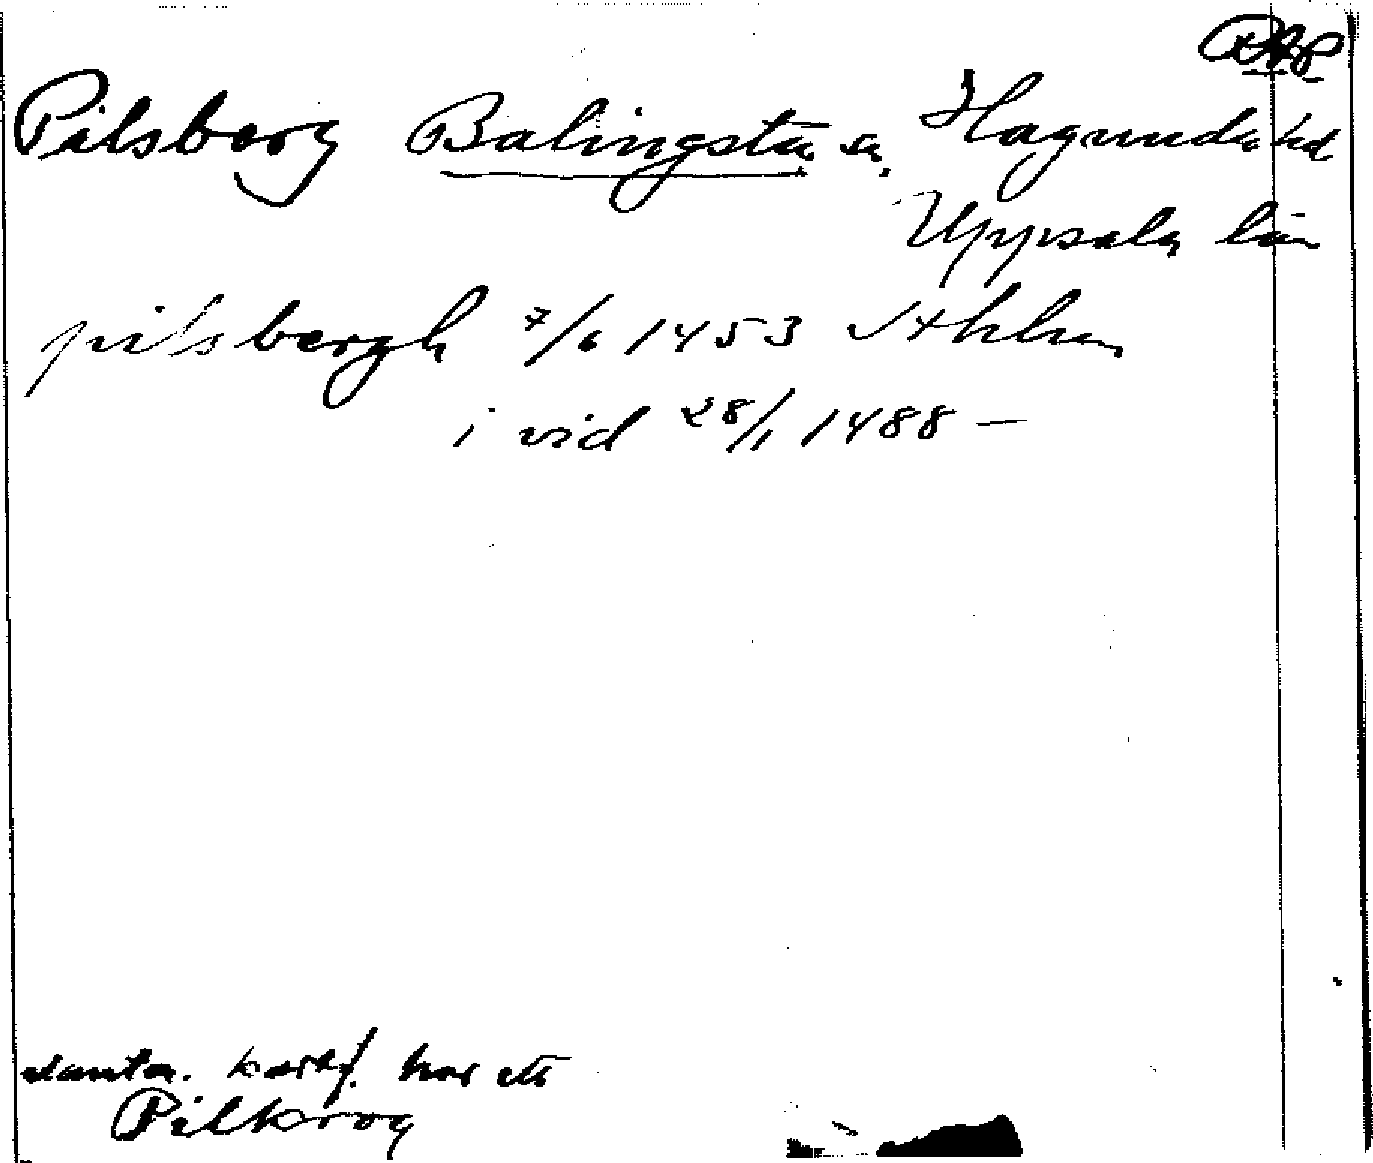 Pilsberg Balingsta sn. Hagunda hd
Uppsala län
pilsbergh 7/6 1453 Sthlm
i vid 28/1 1488 —
kartbl. har ett
Pilkrog